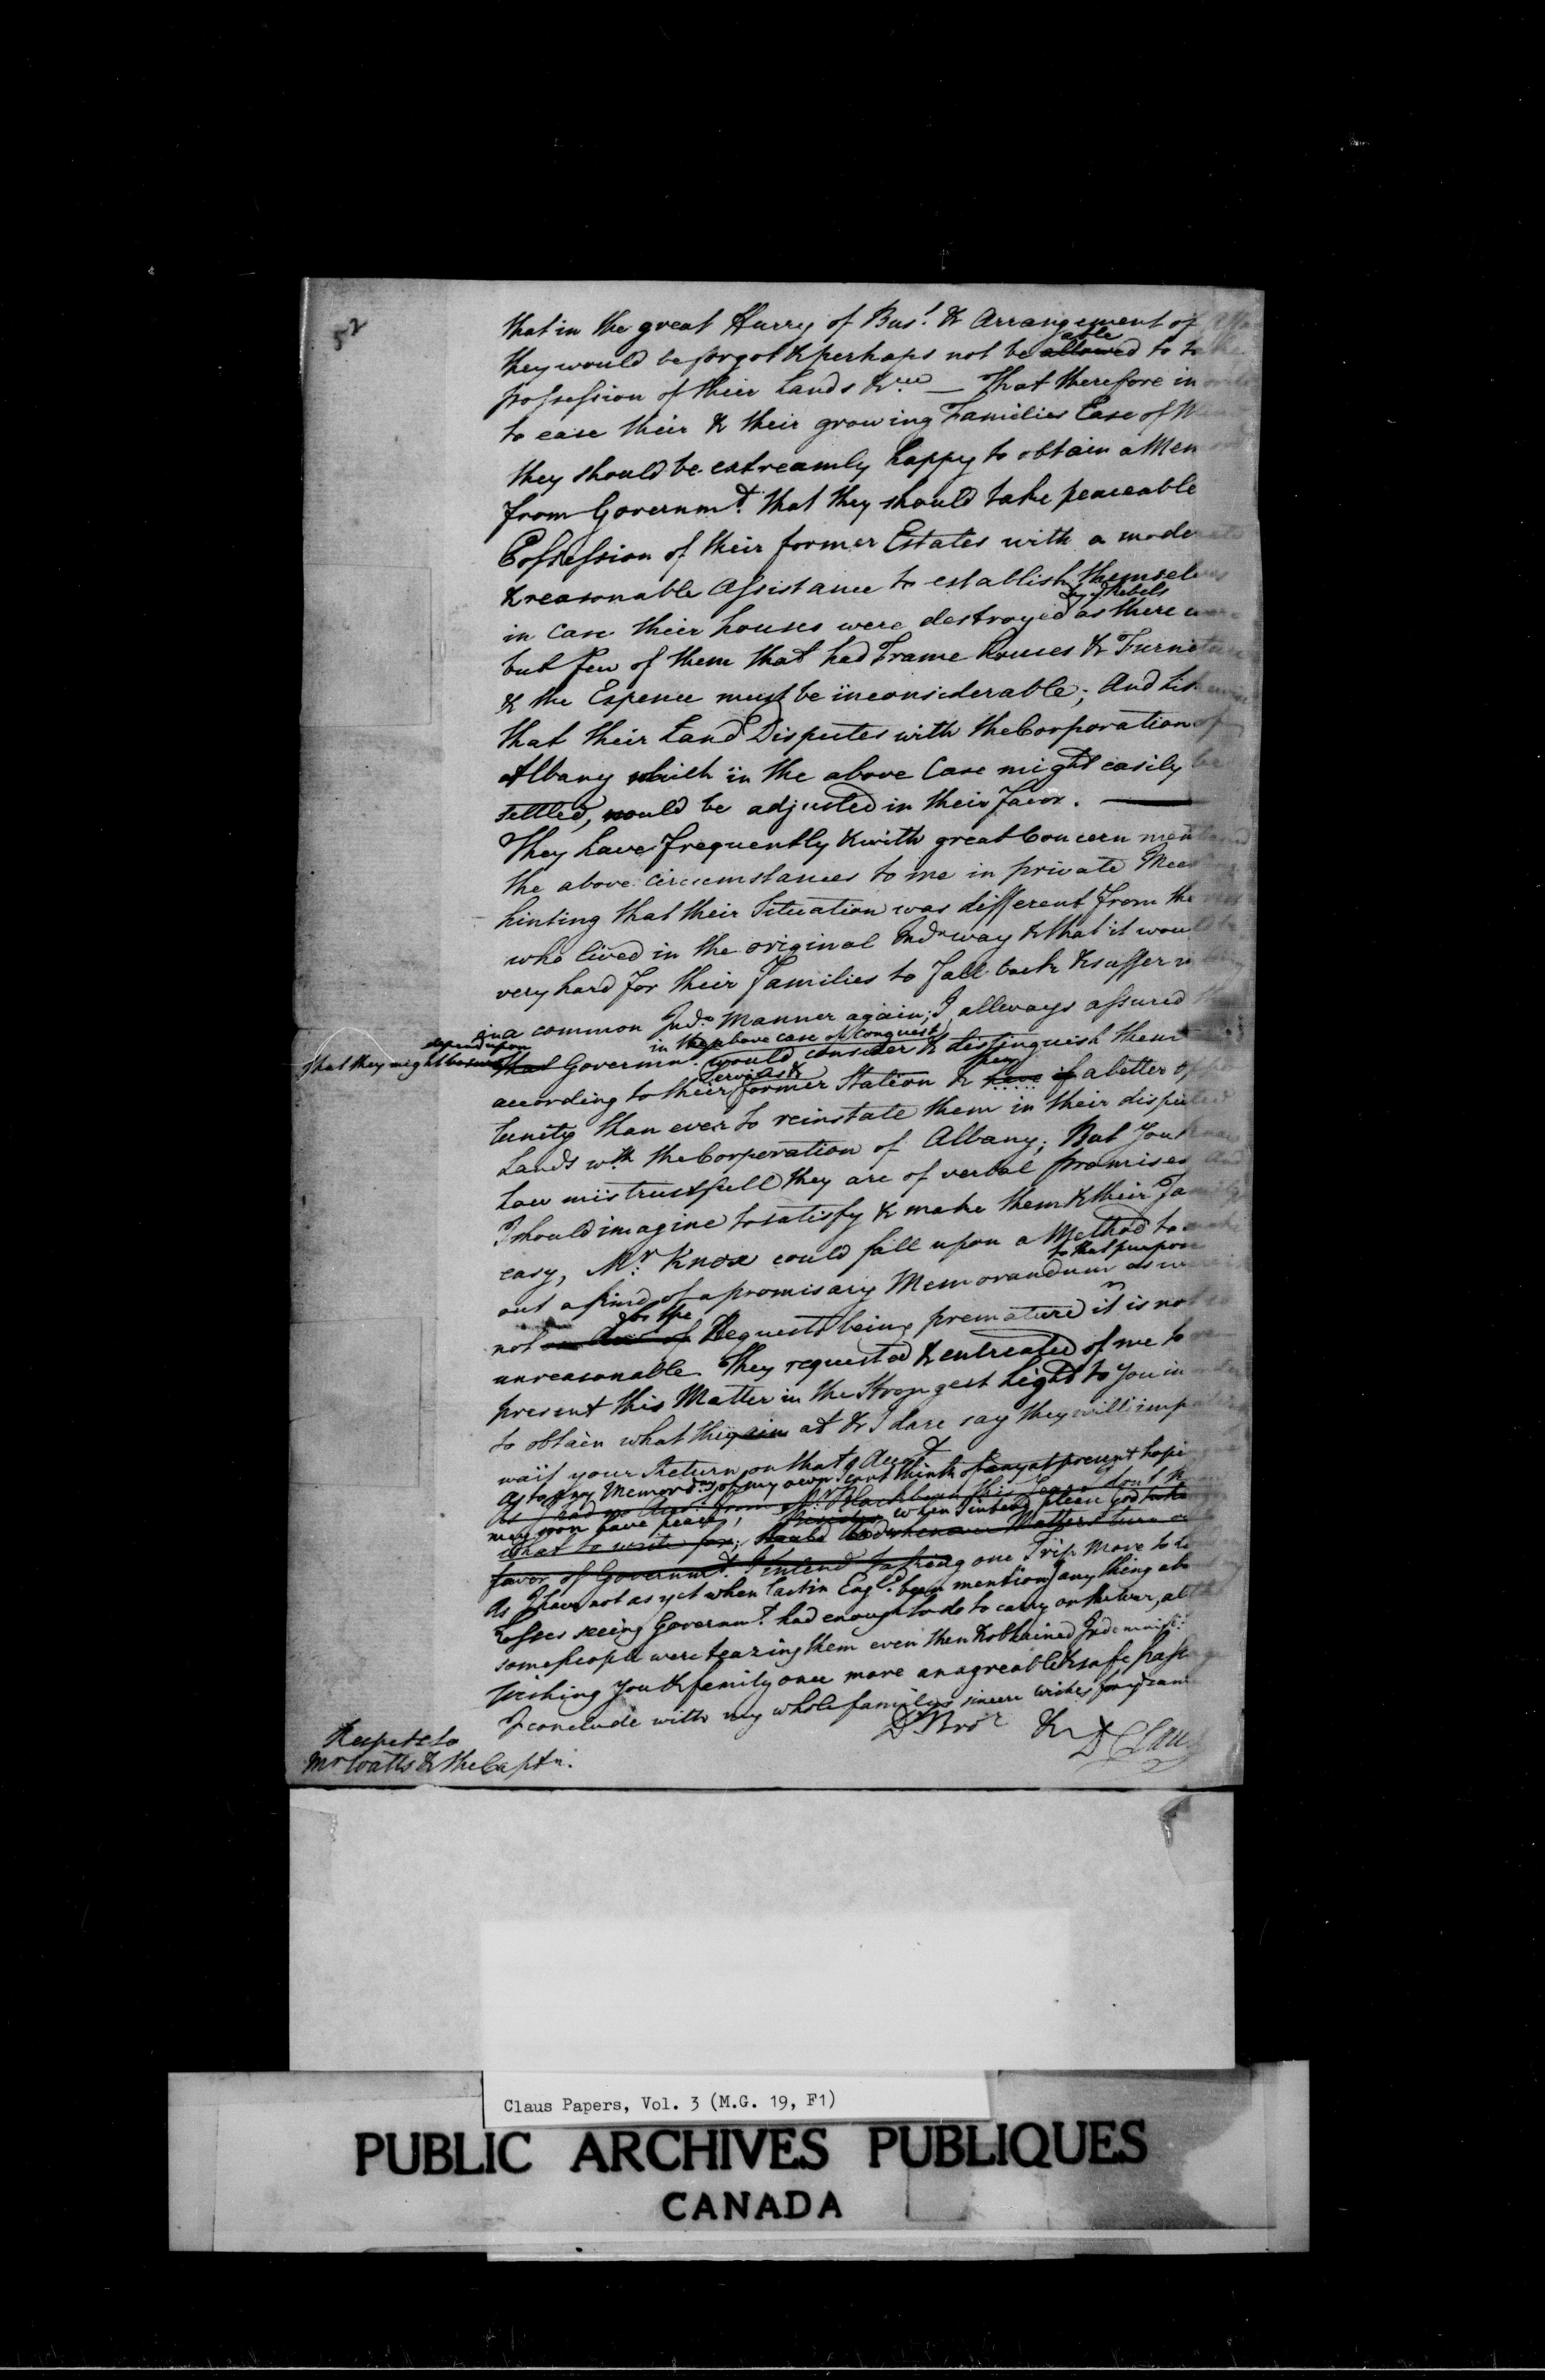 52
that in the great Hurry of Bus.t & Arrangement of
able
they would be forgot & perhaps not be allowed to take
possession of their Lands &ca — That therefore in
to ease their & their growing Families Ease of
they should be extreamly happy to obtain a Mem
from Governmt. that they should take peaceable
Possession of their former Estates with a moderate
& reasonable Assistance to establish themselves
by ye Rebels
in case their houses were destroyed as there were
but few of them that had Frame houses & Furniture
& the Expence must be inconsiderable; And likewise
that their Land Disputes with the Corporation of
Albany which in the above Case might easily be
settled, would be adjusted in their favor. —
They have frequently & with great Concern mentioned
the above circumstances to me in private Meeting
hinting that their Situation was different from the rest
who lived in the original Indn way & that it would be
very hard for their Families to fall back & suffer
in a common Indn Manner again; I allways assured
depend upon
in the above case of Conquest
that they might be sure that Governmt. would consider & distinguish them
Services &
according to their former Station & have if a better oppor
tunity than ever to reinstate them in their disputed
Lands wth the Corporation of Albany; But You know
how mistrustfull they are of verbal promises and
I should imagine to satisfy & make them & their Family
easy, Mr. Knox could fall upon a Method to make
to that purpose
out a kind of a promisary Memorandum as
for the
not Requests being premature it is not
unreasonable They requested & entreated of me to re
present this Matter in the Strongest Light to You in order
to obtain what they aim at & I dare say they will impatient
wait your Return on that Acct
As to any Memordms of my own I cant think of any at present hope
as I had no Acct. from Mr. Blackburn this Year I dont know
may soon have peace, when I intend please God
what to write for; whenever Matters turn
favor of Governmt. I intend taking one Trip more to
As I have not as yet when last in Engd. been mentiong any thing abo
Losses seeing Governmt. had enough to do to carry on the War, altho
some people were teazing them even then & obtained Indemnific:
Wishing You & family once more an agreable & safe passage
I conclude with my whole familys sincere wishes for ye same
Dr Bror &ca D Claus
Respects to
Mr Watts & the Captn.
Claus Papers, Vol. 3 (M.G. 19, F1)
PUBLIC ARCHIVES PUBLIQUES
CANADA